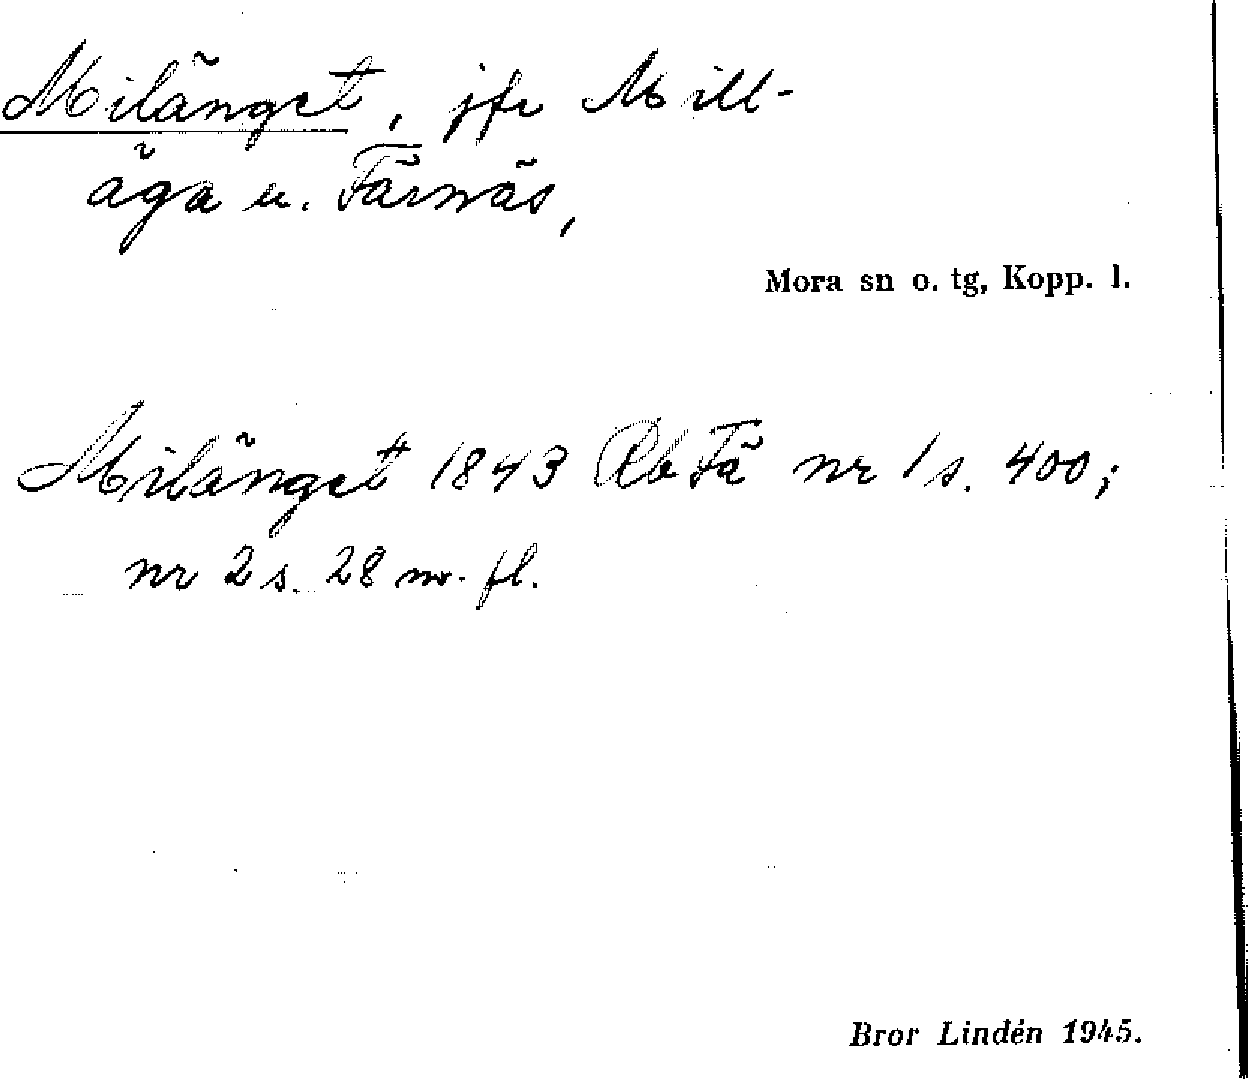 Milänget, jfr Mill-
äga u. Färnäs,
Mora sn o. tg, Kopp. l.
Milänget 1843 Rb Fä nr 1 s. 400;
nr 2 s. 28 m. fl.
Bror Lindén 1945.